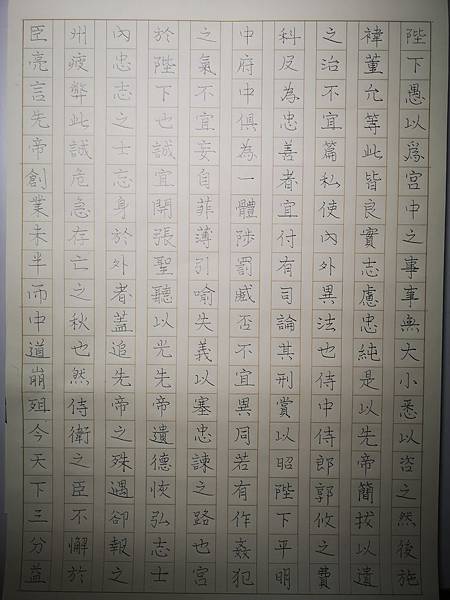 臣亮言先帝創業未半而中道崩殂今天下三分益
州疲弊此誠危急存亡之秋也然侍衛之臣不懈於
內忠志之士忘身於外者蓋追先帝之殊遇卻報之
於陛下也誠宜開張聖聽以光先帝遺德恢弘志士
之氣不宜妄自菲薄引喻失義以塞忠諫之路也宮
中府中俱為一體陟罰臧否不宜異同若有作姦犯
科及為忠善者宜付有司論其刑賞以昭陛下平明
之治不宜篇私使內外異法也侍中侍郎郭攸之費
禕董允等此皆良實志慮忠純是以先帝簡拔以遺
陛下愚以爲宮中之事事無大小悉以咨之然後施